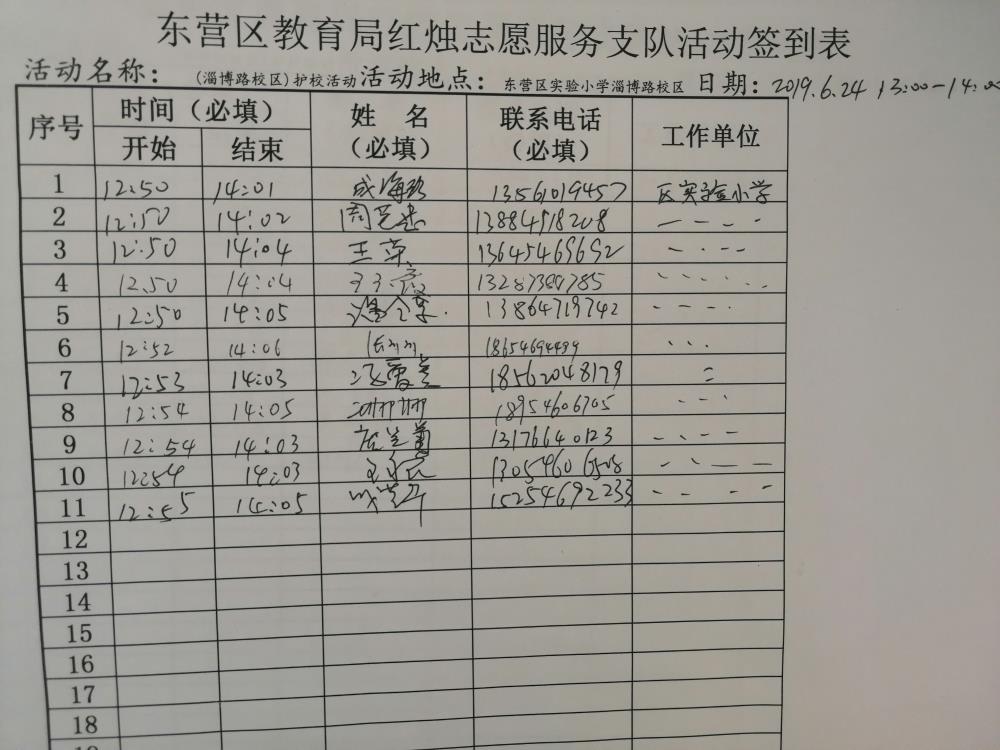 东营区教育局红烛志愿服务支队活动签到表
活动名称：（淄博路校区）护校活动 活动地点：东营区实验小学淄博路校区 日期：2019.6.24 13:00-14:00
序号 时间（必填） 姓 名（必填） 联系电话（必填） 工作单位
开始 结束
1 12:50 14:01 成海 13561019457 区实验小学
2 12:50 14:02 周 13884518208
3 12:50 14:04 王 13645469692
4 12.50 14:04 1328738
5 12:50 14:05 13864719742
6 12:52 14:06 18654694499
7 12:53 14:03 冯雪 18562048179
8 12:54 14:05 娜娜 18954606705
9 12:54 14:03 13176640123
10 12:54 14:03 13054606508
11 12:55 14:05 15254692233
12
13
14
15
16
17
18